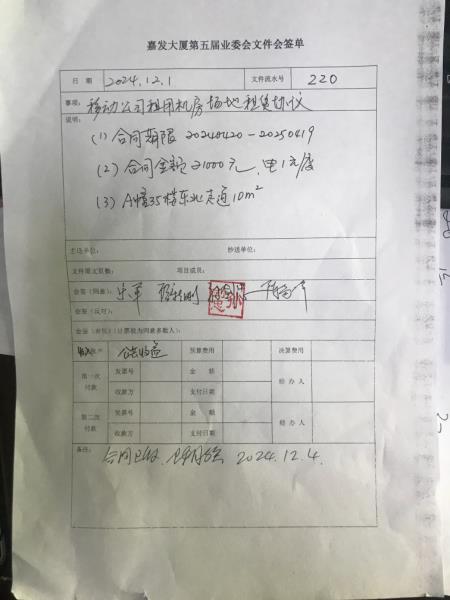 嘉发大厦第五届业委会文件会签单
日 期 2024.12.1 文件流水号 220
事项: 移动公司租用机房场地租赁协议
说明:
(1) 合同期限 20240420-20250419
(2) 合同金额 21000元、电1元/度
(3) A幢35楼东北走道10m²
主送单位: 抄送单位:
文件原文页数: 项目成员:
会签(同意):
会签(反对):
会签(弃权)(计票视为同意多数人):
账户 公共收益 预算费用 决算费用
第一次付款 发票号 金 额 经 办 人
收款方 支付日期
第二次付款 发票号 金 额 经 办 人
收款方 支付日期
备注: 合同已收、 2024.12.4.